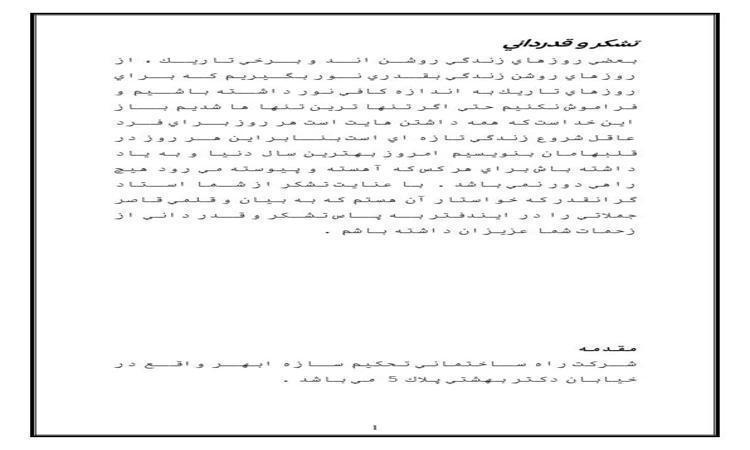 تشكر و قدرداني
بعضي روزهاي زندگي روشن اند و برخي تاريك . از
روزهاي روشن زندگي بقدري نور بگيريم كه براي
روزهاي تاريك به اندازه كافي نور داشته باشيم و
فراموش نكنيم حتي اگر تنها ترين تنها ها شديم باز
اين خداست كه همه داشتن هايت است هر روز براي فرد
عاقل شروع زندگي تازه اي است بنابراين هر روز در
قلبهامان بنويسيم امروز بهترين سال دنيا و به ياد
داشته باش براي هر كس كه آهسته و پيوسته مي رود هيچ
راهي دور نمي باشد . با عنايت تشكر از شما استاد
گرانقدر كه خواستار آن هستم كه به بيان و قلمي قاصر
جملاتي را در ايندفتر به پاس تشكر و قدر داني از
زحمات شما عزيزان داشته باشم .
مقدمه
شركت راه ساختماني تحكيم سازه ابهر واقع در
خيابان دكتر بهشتي پلاك 5 مي باشد .
1